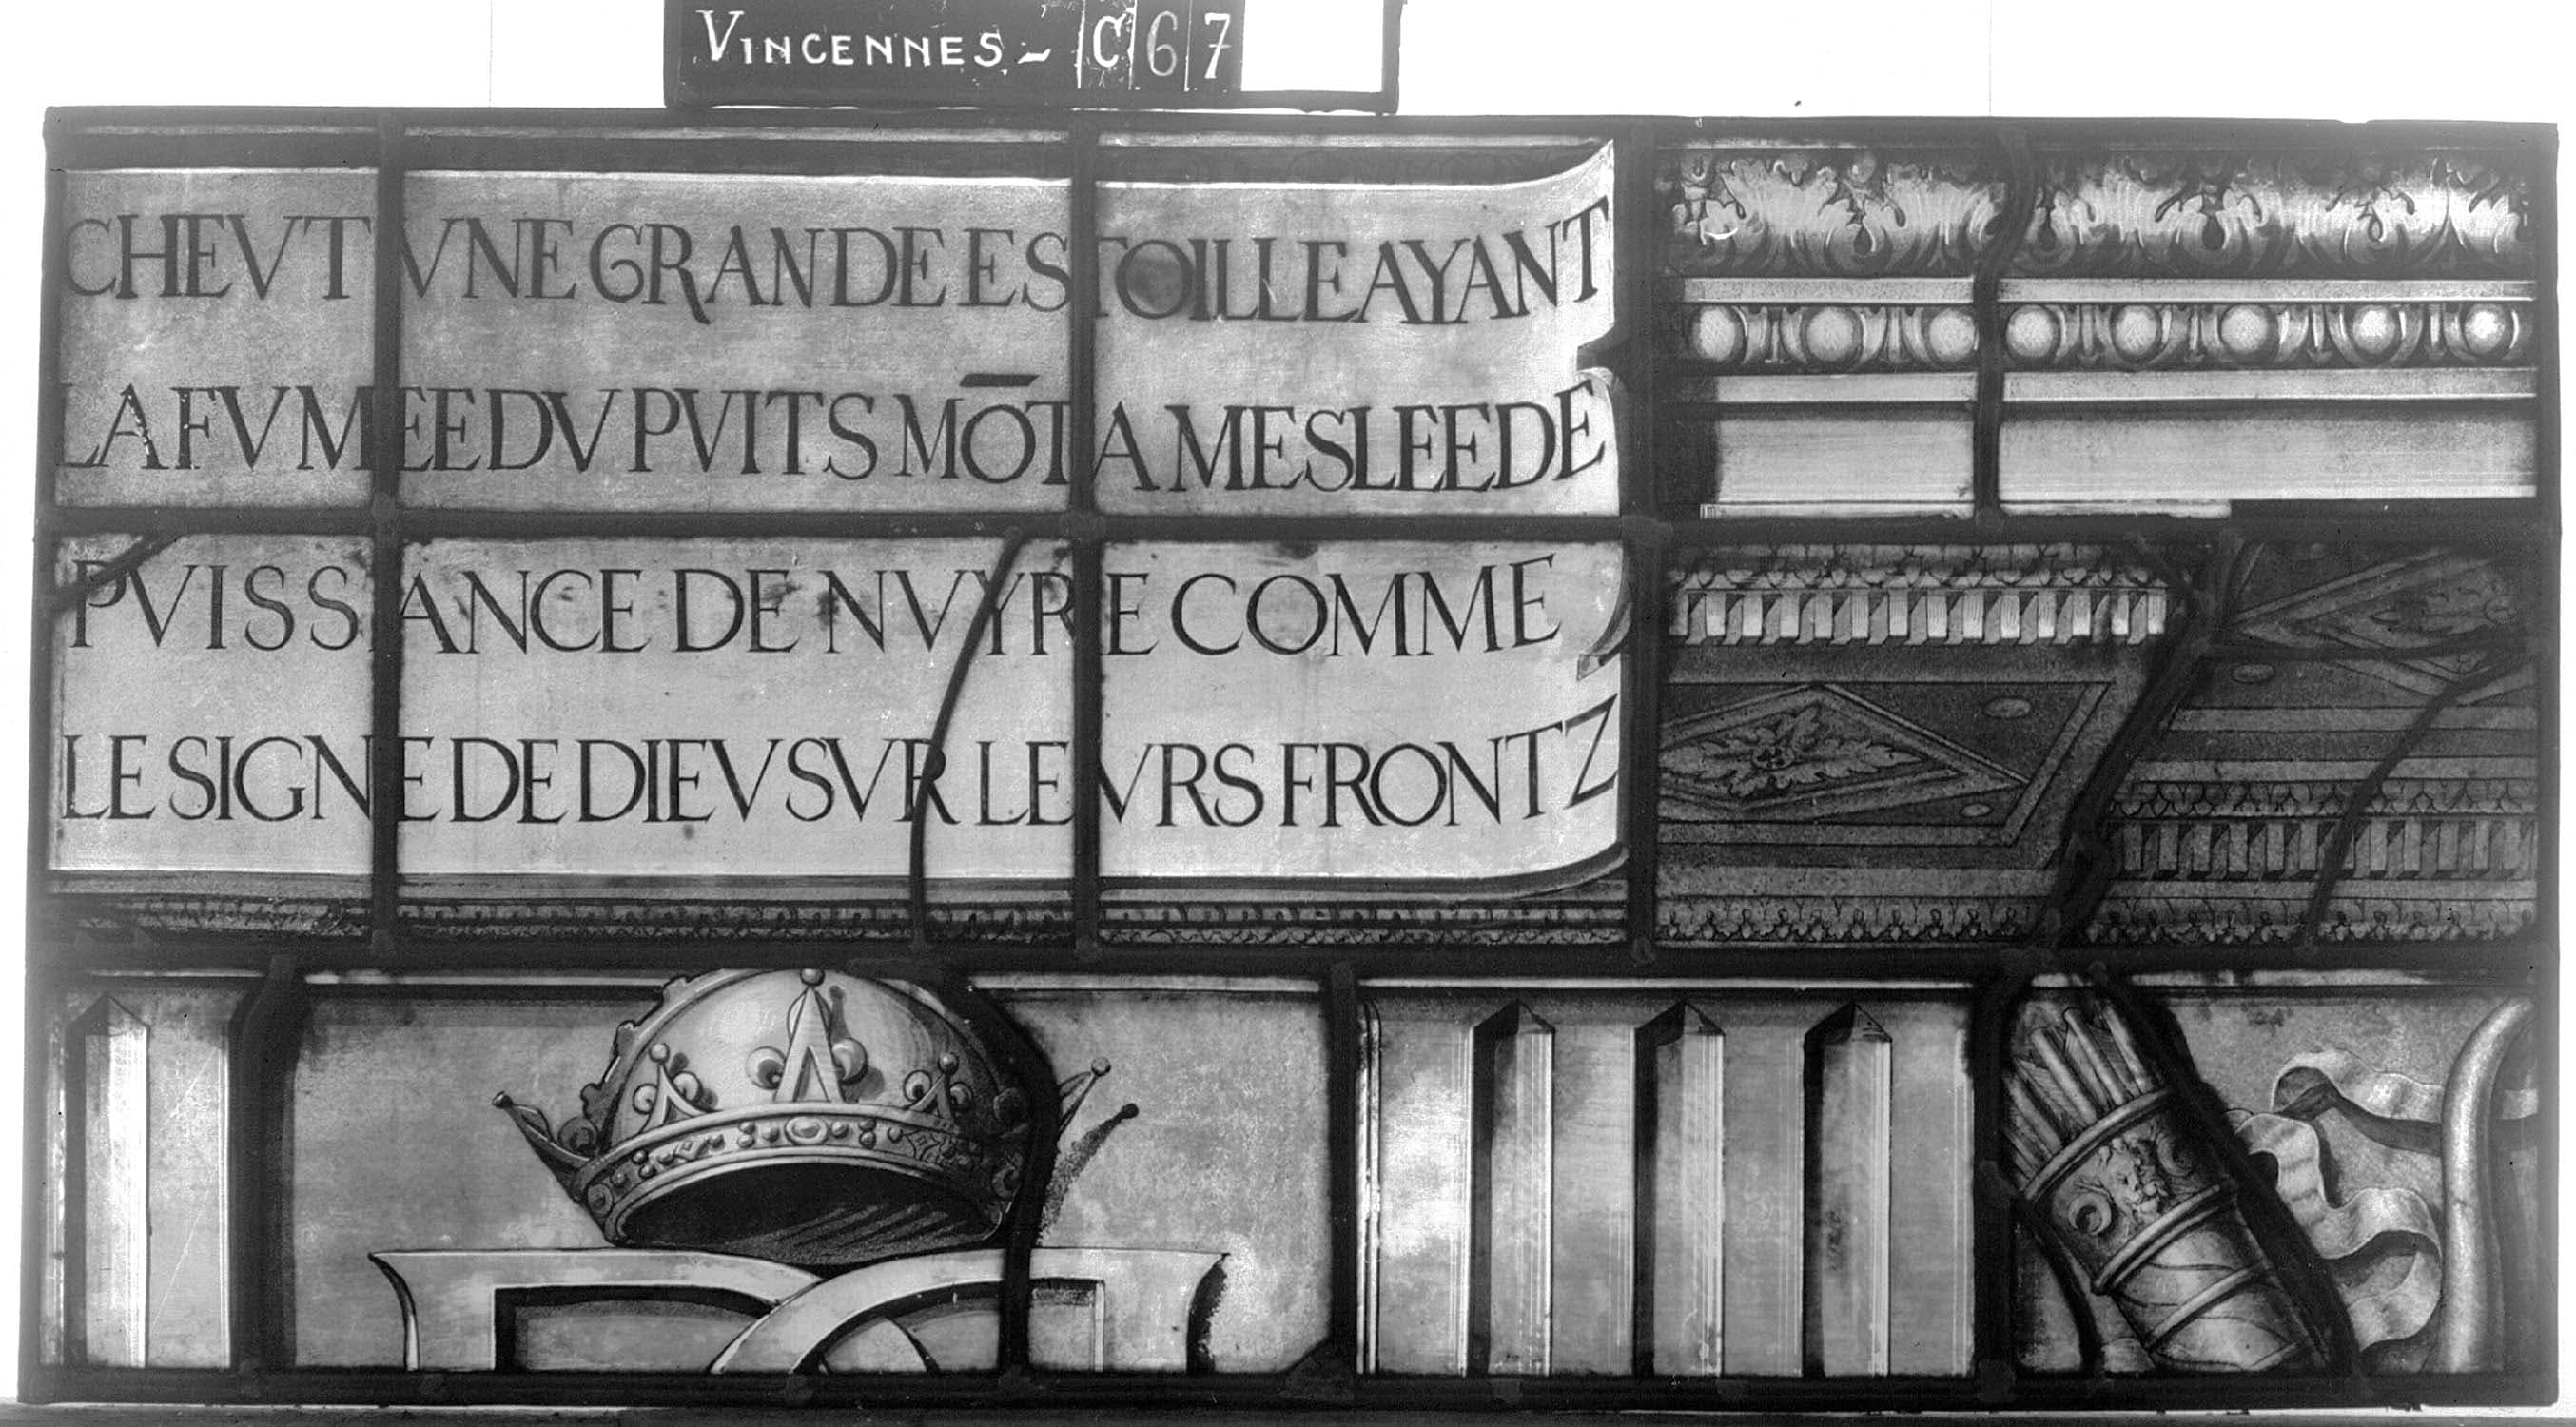 VINCENNES - C67
CHEVT VNE GRANDE ESTOILLE AYANT
LA FVMEE DV PVITS MŌTA MESLEE DE
PVISSANCE DE NVYRE COMME
LE SIGNE DE DIEV SVR LEVRS FRONTZ